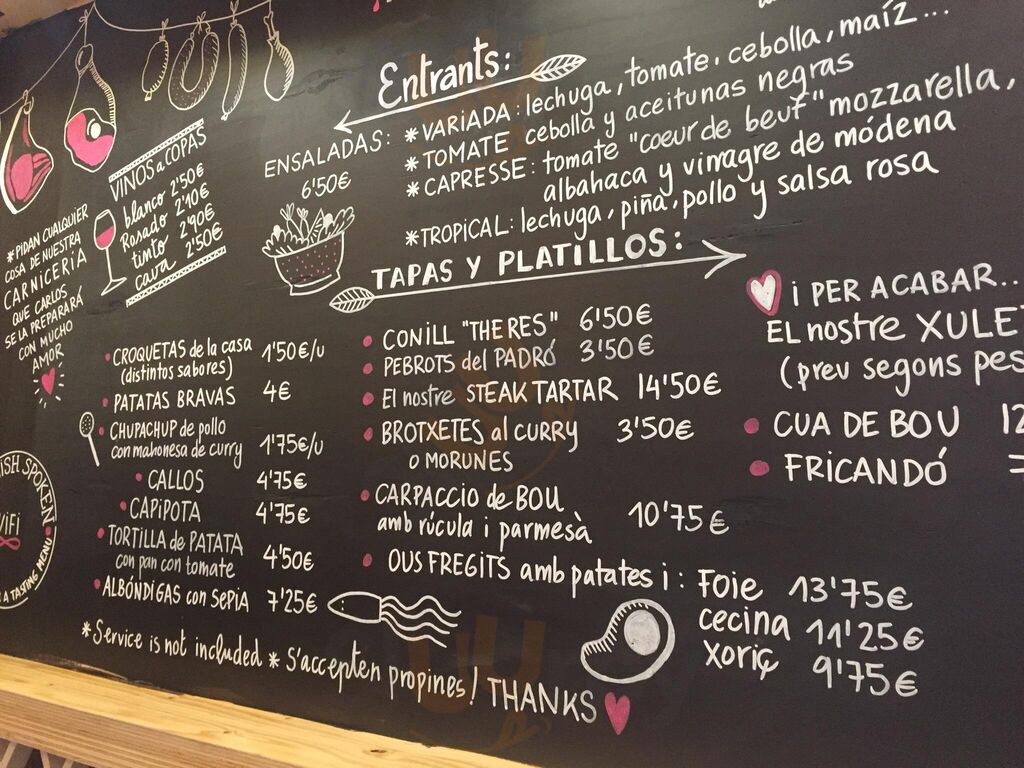 Entrants:
ENSALADAS:
6'50€
*VARIADA: lechuga, tomate, cebolla, maíz...
*TOMATE cebolla y aceitunas negras
*CAPRESSE: tomate "coeur de beuf" mozzarella,
albahaca y vinagre de módena
*TROPICAL: lechuga, piña, pollo y salsa rosa
VINOS a COPAS
blanco 2'50€
Rosado 2'10€
tinto 2'90€
cava 2'50€
*PIDAN CUALQUIER
COSA DE NUESTRA
CARNICERÍA
QUE CARLOS
SE LA PREPARARÁ
CON MUCHO
AMOR
TAPAS Y PLATILLOS:
CROQUETAS de la casa 1'50€/u
(distintos sabores)
PATATAS BRAVAS 4€
CHUPACHUP de pollo
con mahonesa de curry 1'75€/u
CALLOS 4'75€
CAPIPOTA 4'75€
TORTILLA de PATATA
con pan con tomate 4'50€
ALBÓNDIGAS con SEPIA 7'25€
CONILL "THERES" 6'50€
PEBROTS del PADRÓ 3'50€
El nostre STEAK TARTAR 14'50€
BROTXETES al CURRY 3'50€
O MORUNES
CARPACCIO de BOU
amb rúcula i parmesà 10'75€
OUS FREGITS amb patates i: Foie 13'75€
cecina 11'25€
xoriç 9'75€
i PER ACABAR...
EL nostre XULE
(preu segons pes
CUA DE BOU 12
FRICANDÓ
ISH SPOKEN
WIFI
A TASTING MENU
*Service is not included * S'accepten propines! THANKS